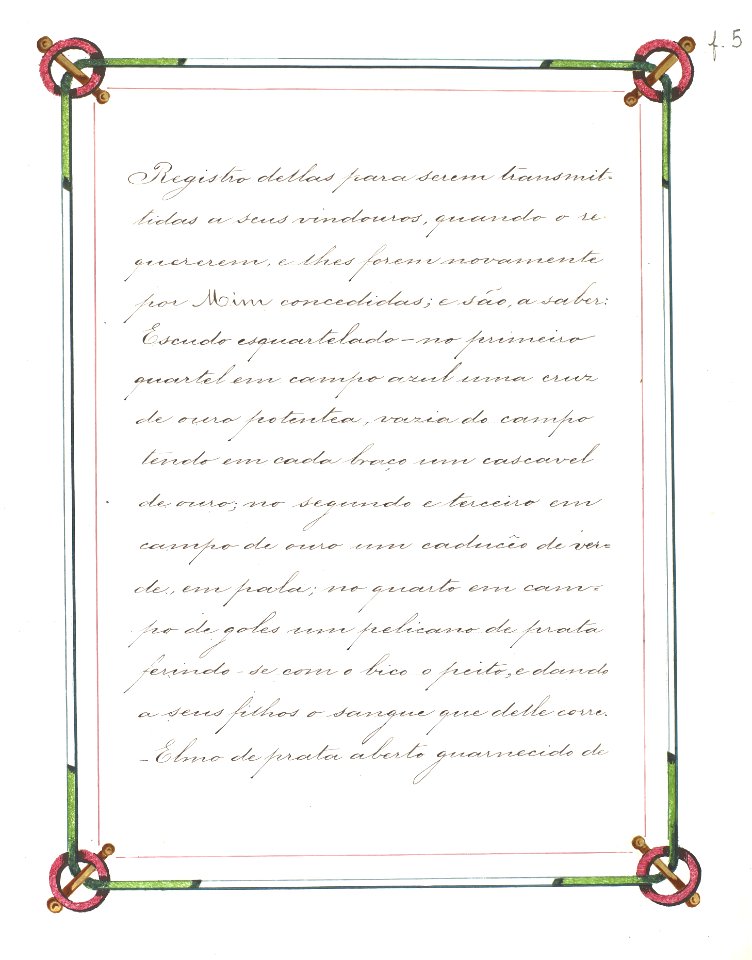 f. 5
Registro dellas para serem transmit-
tidas a seus vindouros, quando o re
quererem, e lhes forem novamente
por Mim concedidas; e são, a saber:
Escudo esquartelado - no primeiro
quartel em campo azul uma cruz
de ouro potentea, vazia do campo
tendo em cada braço um cascavel
de ouro; no segundo e terceiro em
campo de ouro um caducêo de ver=
de, em pala; no quarto em cam=
po de goles um pelicano de prata
ferindo-se com o bico o peito, e dando
a seus filhos o sangue que delle corre.
- Elmo de prata aberto guarnecido de